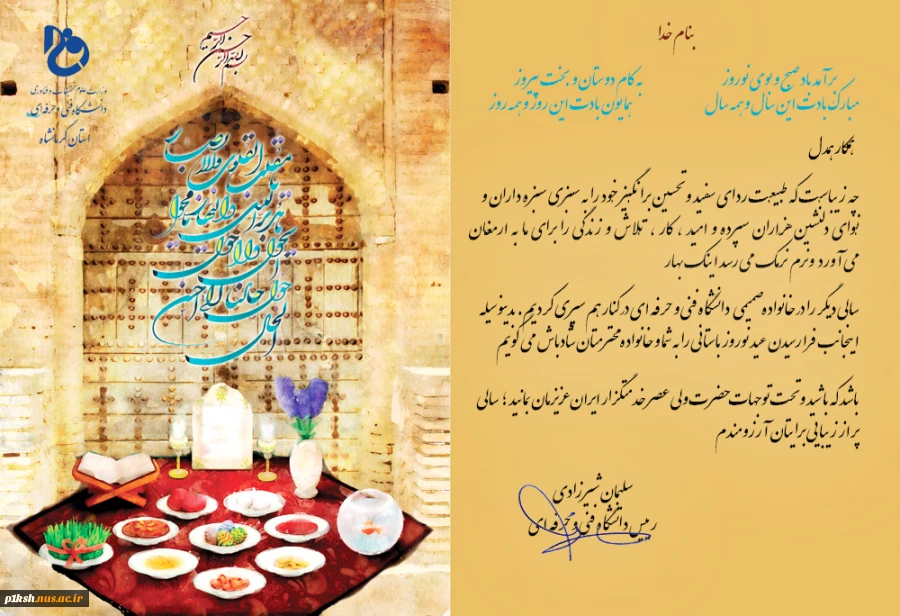 بسم الله الرحمن الرحیم
وزارت علوم تحقیقات و فناوری
دانشگاه فنی و حرفه ای
استان کرمانشاه
یا مقلب القلوب والابصار
یا مدبر اللیل والنهار
یا محول الحول والاحوال
حول حالنا الی احسن الحال
p1ksh.nus.ac.ir
بنام خدا
برآمد باد صبح و بوی نوروز
به کام دوستان و بخت پیروز
مبارک بادت این سال و همه سال
همایون بادت این روز و همه روز
همکار همدل
چه زیباست که طبیعت ردای سفید و تحسین برانگیز خود را به سبزی سبزه داران و
نوای دلنشین هزاران سپرده و امید ، کار ، تلاش و زندگی را برای ما به ارمغان
می آورد و نرم نرمک می رسد اینک بهار
سالی دیگر را در خانواده صمیمی دانشگاه فنی و حرفه ای در کنار هم سپری کردیم . بدینوسیله
اینجانب فرا رسیدن عید نوروز باستانی را به شما و خانواده محترمتان شادباش می گویم
باشد که باشید و تحت توجهات حضرت ولی عصر خدمتگزار ایران عزیزمان بمانید ؛ سالی
پر از زیبایی برایتان آرزومندم
سلیمان شیرزادی
رییس دانشگاه فنی و حرفه ای